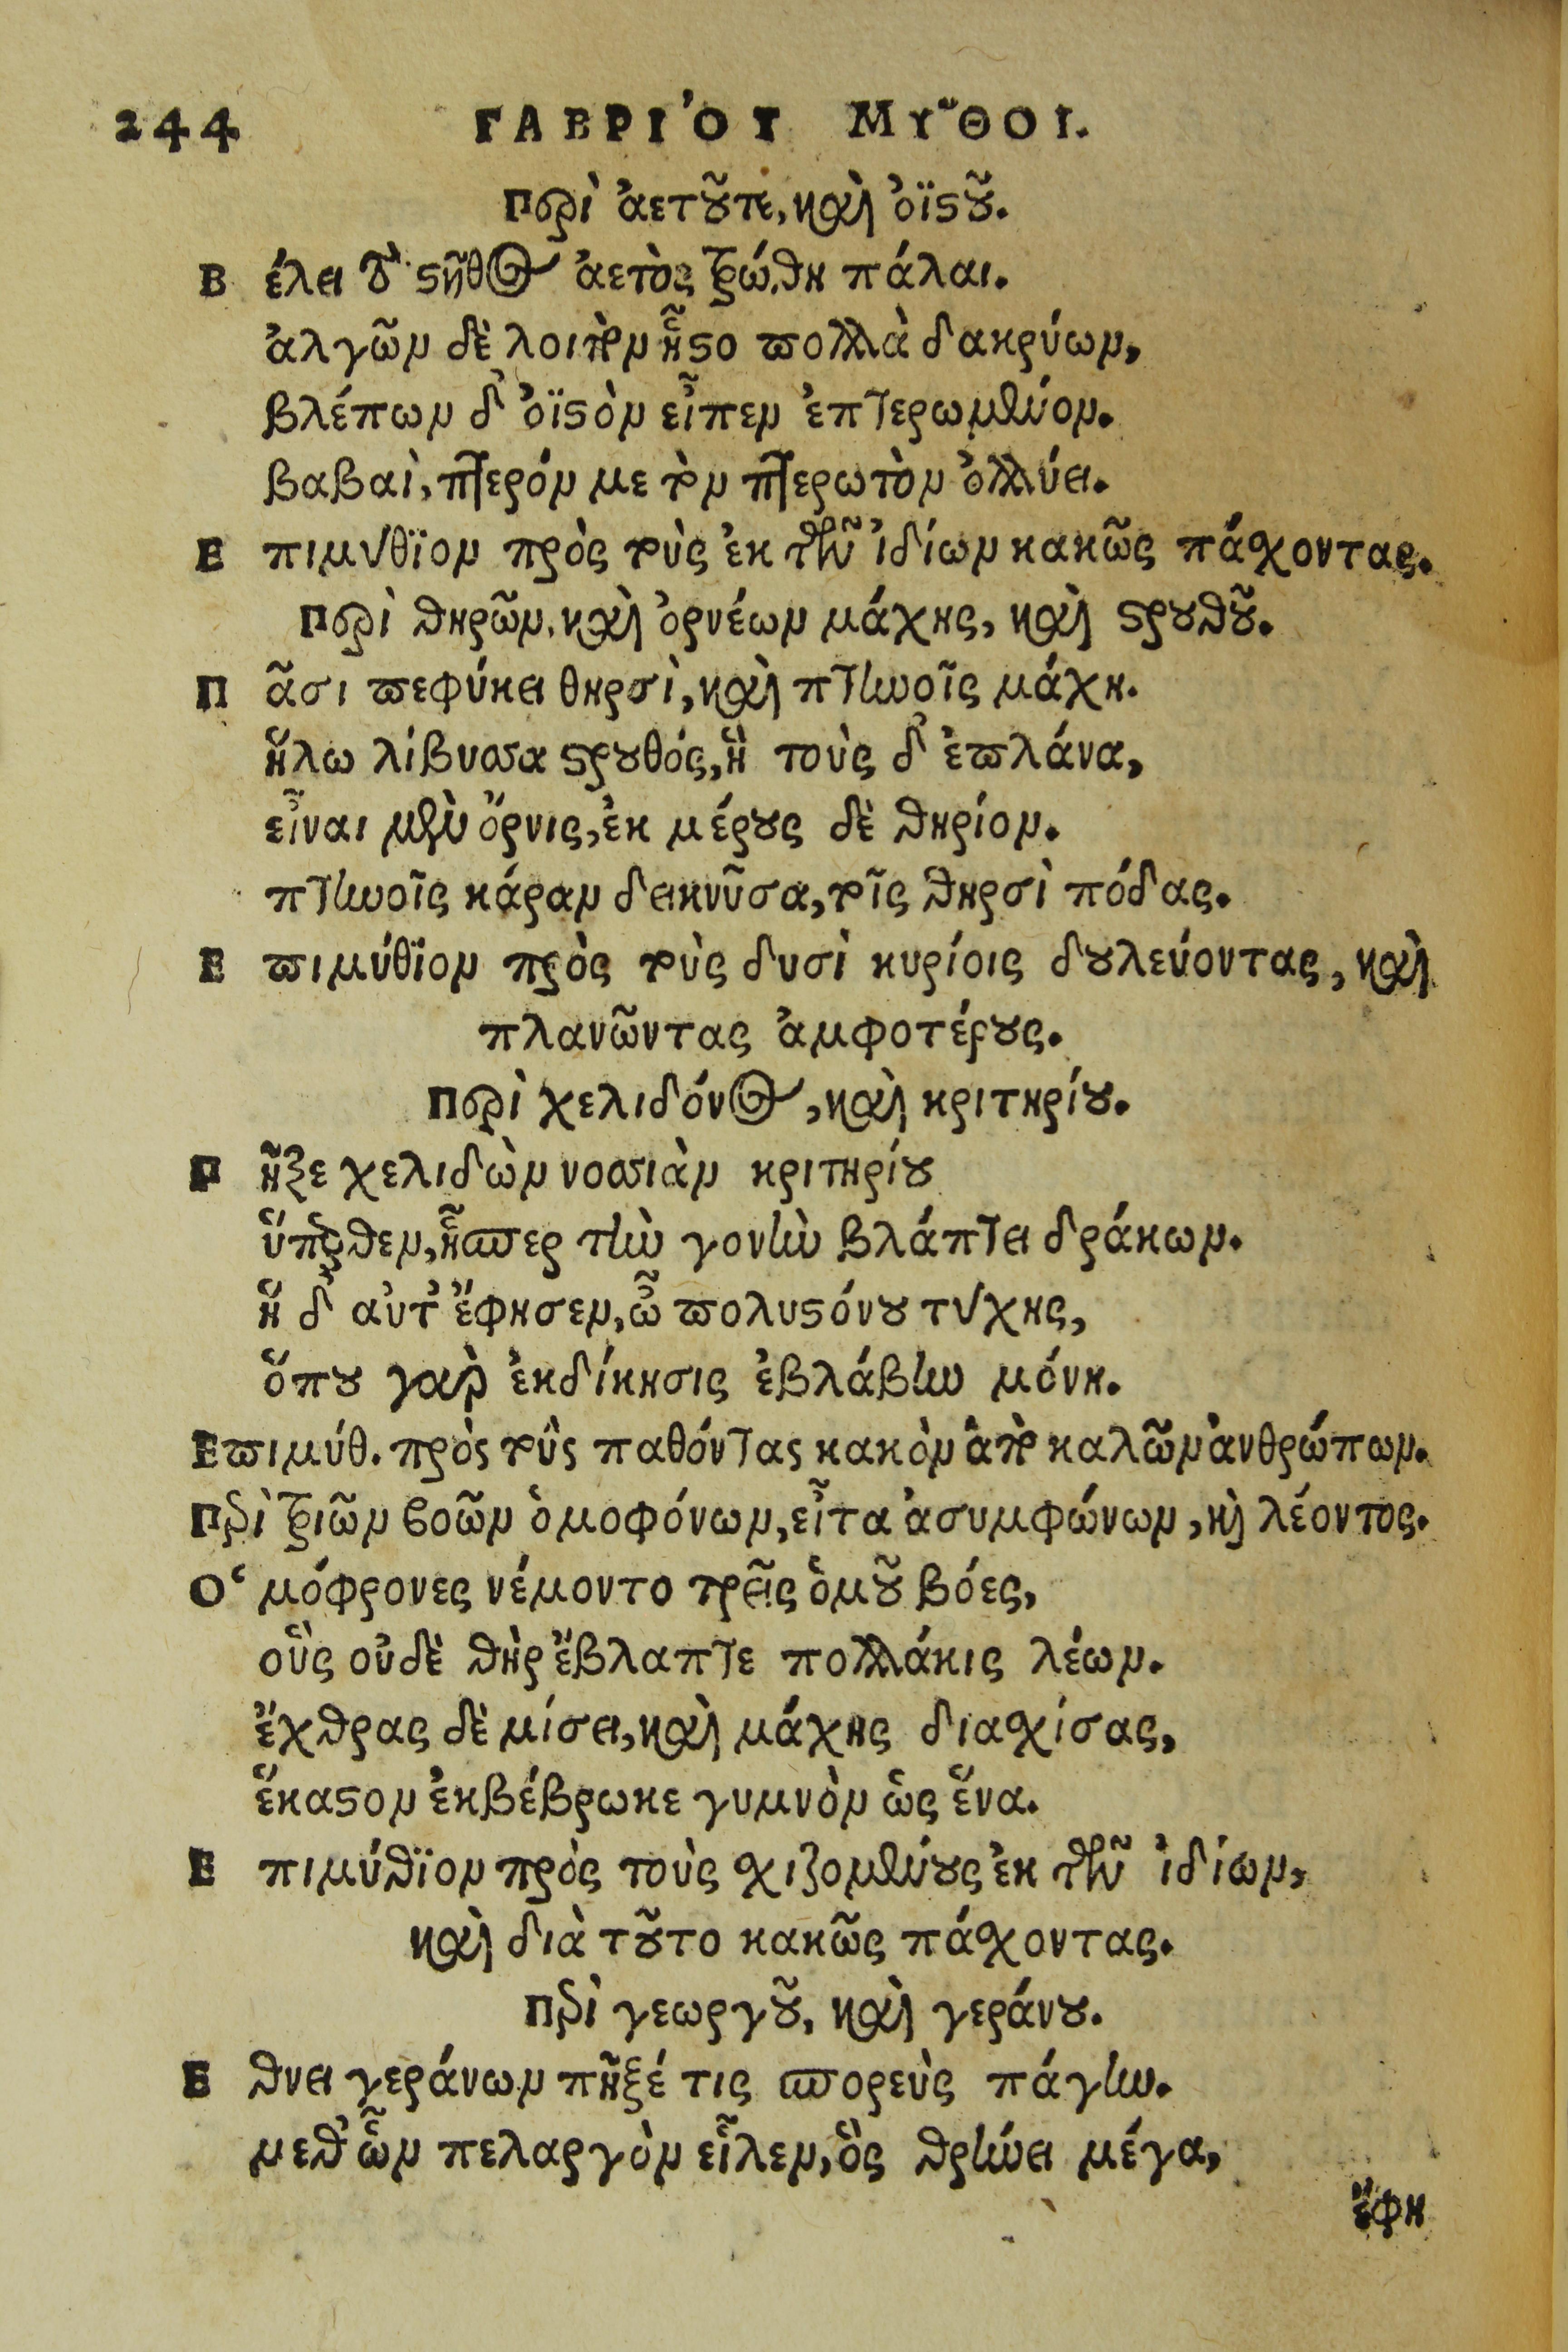 244 ΓΑΒΡΙ'ΟΥ ΜΥ῀ΘΟΙ.
Περὶ ἀετοῦτε, καὶ ὀϊστοῦ.
Βέλει στῆθος ἀετὸς ἐτρώθη πάλαι.
ἀλγῶν δὲ λοιπὸν ἧστο πολλὰ δακρύων,
βλέπων δ' ὀϊστὸν εἶπεν ἐπτερωμένον.
βαβαὶ, πτερόν με τὸν πτερωτὸν ὀλλύει.
Επιμύθϊον πρὸς τοὺς ἐκ τῶν ἰδίων κακῶς πάσχοντας.
Περὶ θηρῶν, καὶ ὀρνέων μάχης, καὶ στρουθοῦ.
Πᾶσι πεφύκει θηρσὶ, καὶ πτηνοῖς μάχη.
ἥλω λίβυσσα στρουθός, ἣ τοὺς δ' ἐπλάνα,
εἶναι μὲν ὄρνις, ἐκ μέρους δὲ θηρίον.
πτηνοῖς κάραν δεικνῦσα, τοῖς θηρσὶ πόδας.
Επιμύθϊον πρὸς τοὺς δυσὶ κυρίοις δουλεύοντας, καὶ
πλανῶντας ἀμφοτέρους.
Περὶ χελιδόνος, καὶ κριτηρίου.
Πῆξε χελιδὼν νοσσιὰν κριτηρίου
ὕπερθεν, ἧσπερ τὴν γονὴν βλάπτει δράκων.
ἣ δ' αὖτ' ἔφησεν, ὦ πολυστόνου τύχης,
ὅπου γὰρ ἐκδίκησις ἐβλάβην μόνη.
Επιμύθ. πρὸς τοὺς παθόντας κακὸν ἀπὸ καλῶν ἀνθρώπων.
Περὶ τριῶν βοῶν ὁμοφόνων, εἶτα ἀσυμφώνων, καὶ λέοντος.
Ο῾μόφρονες νέμοντο τρεῖς ὁμοῦ βόες,
οὓς οὐδὲ θὴρ ἔβλαπτε πολλάκις λέων.
ἔχθρας δὲ μίσει, καὶ μάχης διασχίσας,
ἕκαστον ἐκβέβρωκε γυμνὸν ὡς ἕνα.
Επιμύθϊον πρὸς τοὺς σχιζομένους ἐκ τῶν ἰδίων,
καὶ διὰ τοῦτο κακῶς πάσχοντας.
Περὶ γεωργοῦ, καὶ γεράνου.
Εθνει γεράνων πῆξέ τις σπορεὺς πάγην.
μεθ' ὧν πελαργὸν εἷλεν, ὃς θρήνει μέγα,
ἔφη